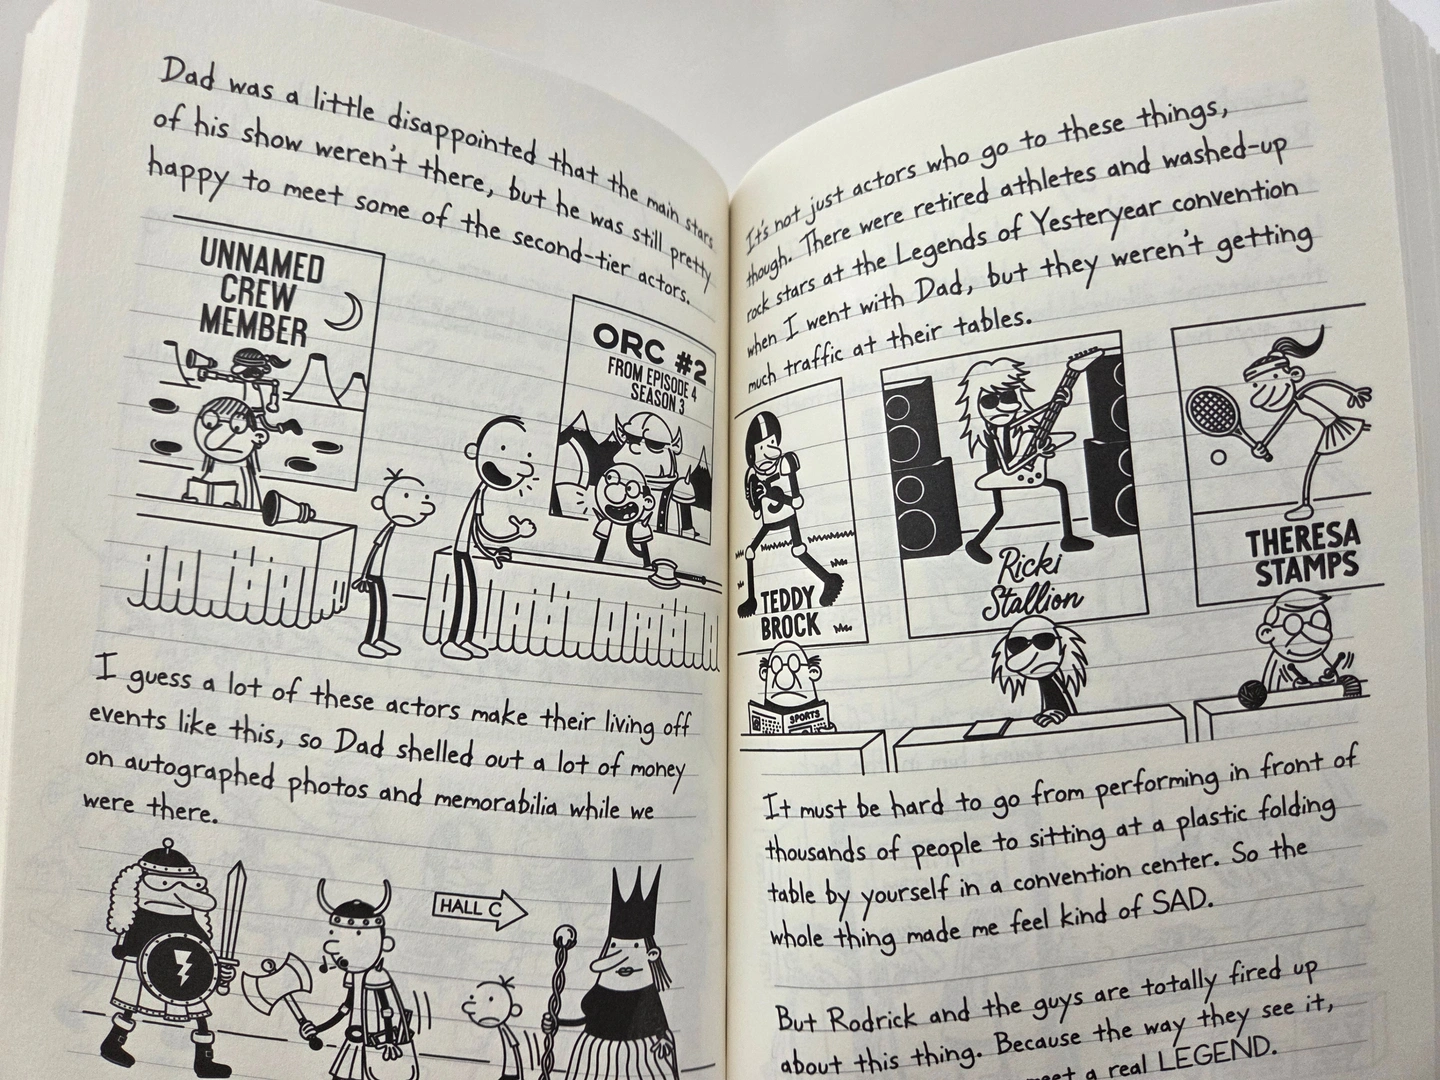 Dad was a little disappointed that the main stars
of his show weren't there, but he was still pretty
happy to meet some of the second-tier actors.
UNNAMED
CREW
MEMBER
ORC #2
FROM EPISODE 4
SEASON 3
I guess a lot of these actors make their living off
events like this, so Dad shelled out a lot of money
on autographed photos and memorabilia while we
were there.
HALL C
It's not just actors who go to these things,
though. There were retired athletes and washed-up
rock stars at the Legends of Yesteryear convention
when I went with Dad, but they weren't getting
much traffic at their tables.
TEDDY
BROCK
Ricki
Stallion
THERESA
STAMPS
SPORTS
It must be hard to go from performing in front of
thousands of people to sitting at a plastic folding
table by yourself in a convention center. So the
whole thing made me feel kind of SAD.
But Rodrick and the guys are totally fired up
about this thing. Because the way they see it,
a real LEGEND.